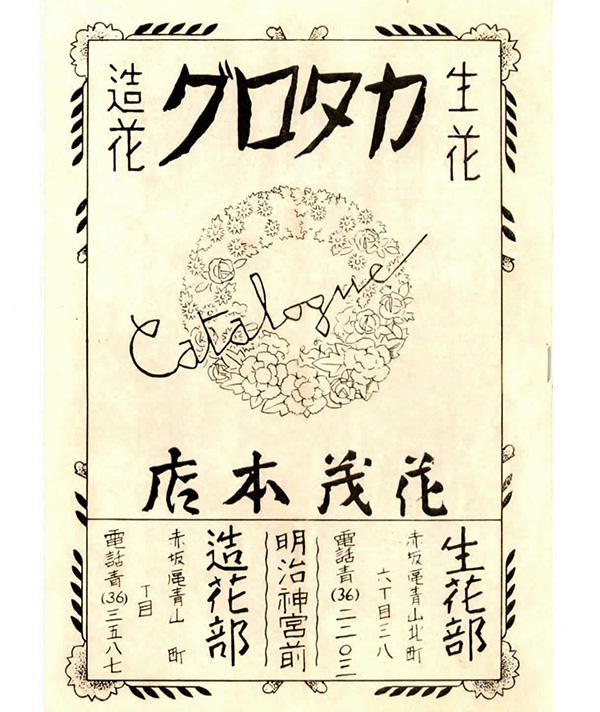 生花
カタログ
造花
Catalogue
花茂本店
生花部
赤坂區青山北町
六丁目三八
電話青(36)二二〇三
明治神宮前
造花部
赤坂區青山 町
丁目
電話青(36)三五八七